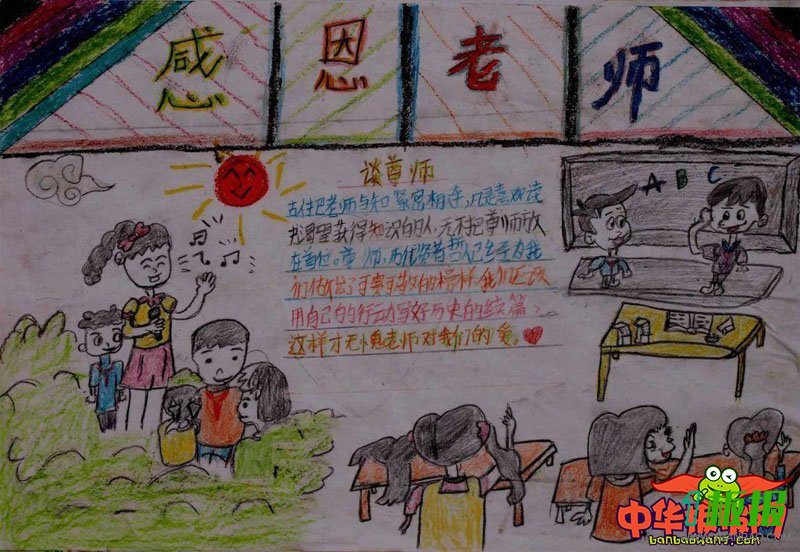 感恩老师
谈尊师
古往把老师与知 紧密相连,凡是喜欢读
书渴望获得知识的人,无不把尊师放
在首位。尊师,历代 者 已经为我
们做出了可 可敬的榜样,我们应该
用自己的行动写好历史的续篇,
这样才无愧老师对我们的爱。
A B C
中华 报网
banbaowang.com